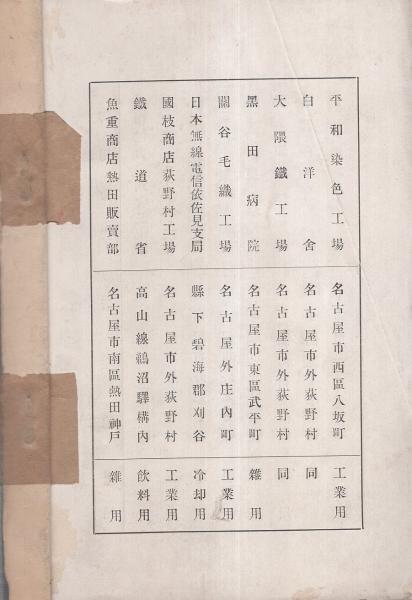 平和染色工場 名古屋市西區八坂町 工業用
白洋舍 名古屋市外荻野村 同
大隈鐵工場 名古屋市外荻野村 同
黑田病院 名古屋市東區武平町 雜用
關谷毛織工場 名古屋外庄內町 工業用
日本無線電信依佐見支局 縣下碧海郡刈谷 冷却用
國枝商店荻野村工場 名古屋市外荻野村 工業用
鐵道省 高山線鵜沼驛構內 飲料用
魚重商店熱田販賣部 名古屋市南區熱田神戶 雜用